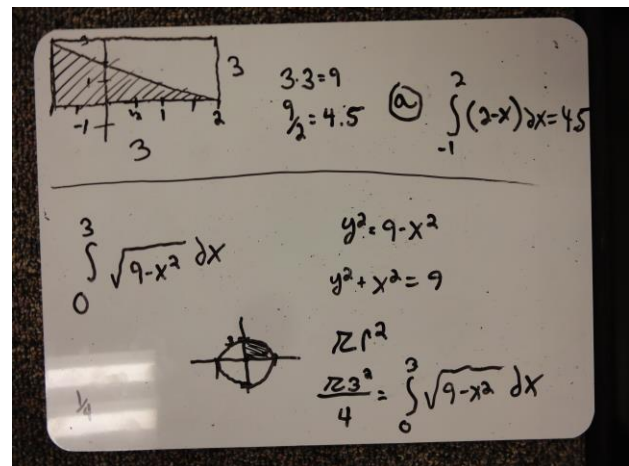 3
1
-1 1/2 1 2
3
3
3·3=9
9/2=4.5
ⓐ ∫₋₁² (2-x)dx=4.5
∫₀³ √(9-x²) dx
y²=9-x²
y²+x²=9
πr²
π3²/4 = ∫₀³ √(9-x²) dx
1/4